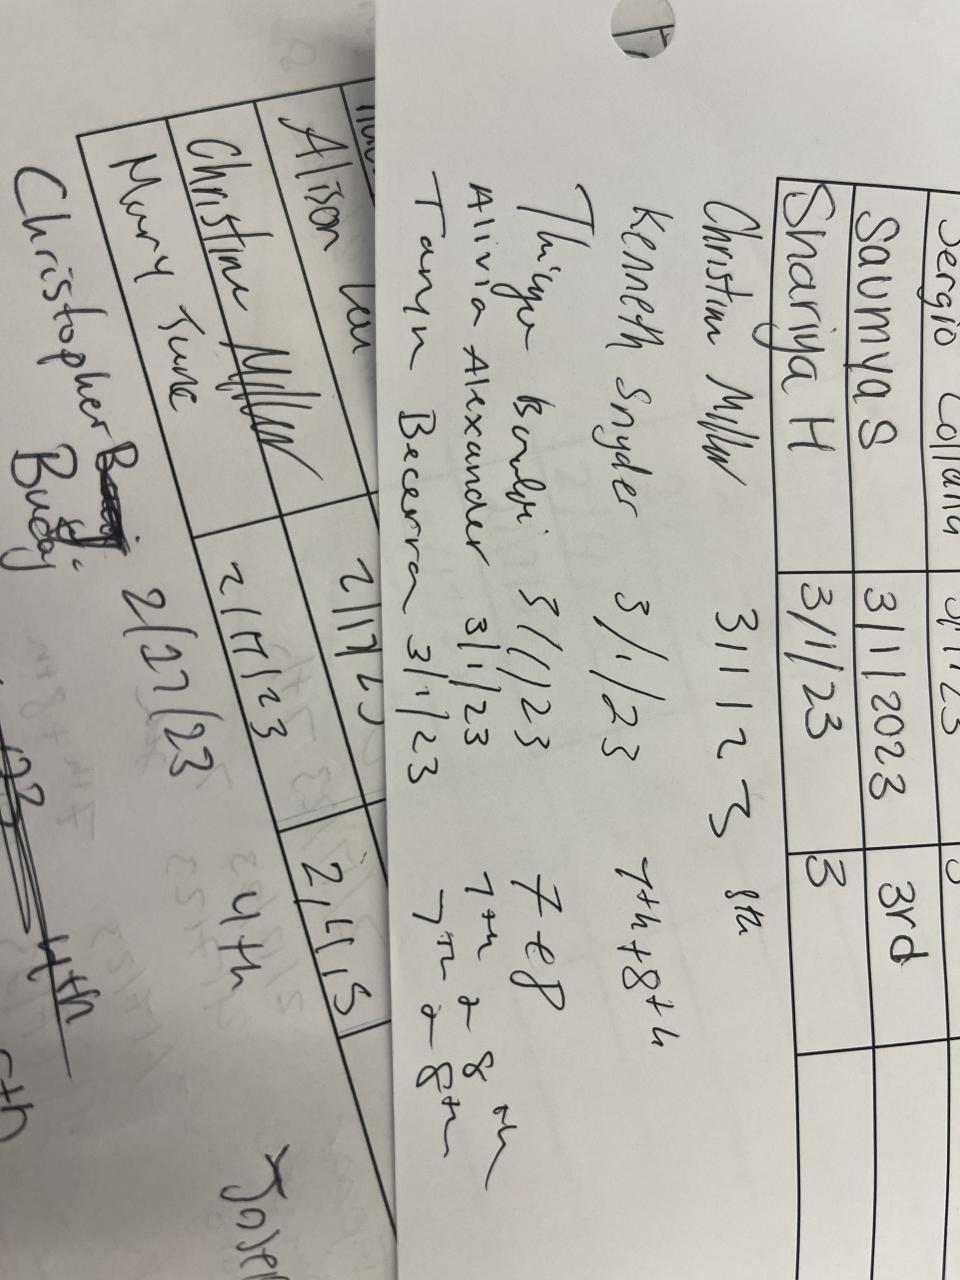 Sergio Collana 3/1/23
Saumya S 3/1/2023 3rd
Shariya H 3/1/23 3
Christina Miller 3/1/23 8th
Kenneth Snyder 3/1/23 7th+8th
3/1/23 7+8
Alivia Alexander 3/1/23 7th & 8th
Tamyn Becerra 3/1/23 7th & 8th
Alison 2/17/23
Christina Miller 2/17/23 2,4,5
Mary June
2/27/23 4th
Christopher Buday
4th
5th